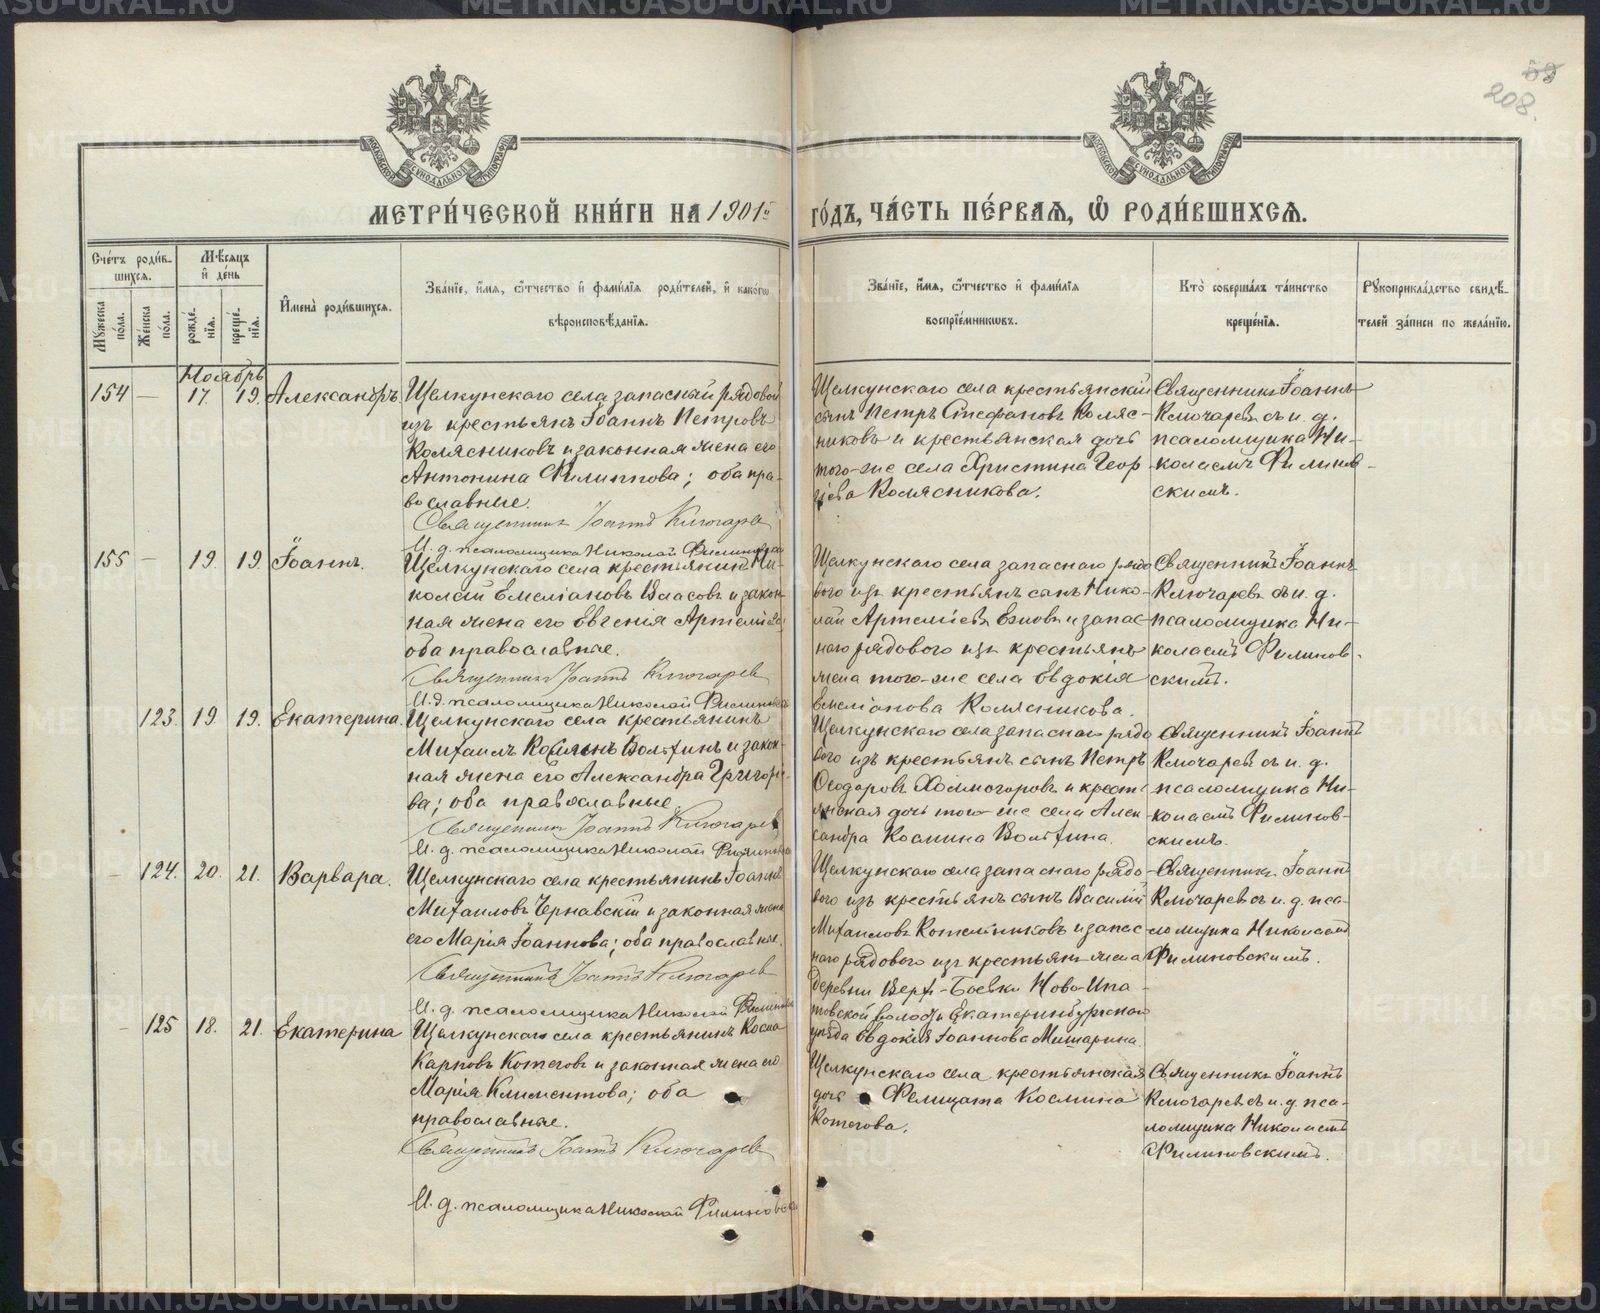 59
208.
МОСКОВСКОЙ СѴНОДАЛЬНОЙ ТИПОГРАФІИ
МОСКОВСКОЙ СѴНОДАЛЬНОЙ ТИПОГРАФІИ
МЕТРИ́ЧЕСКОЙ КНИ́ГИ НА 1901й ГО́ДЪ, ЧА́СТЬ ПЕ́РВАѦ, Ѽ РОДИ́ВШИХСѦ.
Сче́тъ роди́в-
шихсѧ.
Мꙋжеска по́ла.
Же́нска по́ла.
Мѣ́сѧцъ
и҆ де́нь
рожде́-
нїѧ.
креще́-
нїѧ.
И҆мена̀ роди́вшихсѧ.
Зва́нїе, и҆́мѧ, ѻ҆́тчество и҆ фами́лїѧ роди́телей, и҆ како́гѡ
вѣроисповѣ́данїѧ.
Зва́нїе, и҆́мѧ, ѻ҆́тчество и҆ фами́лїѧ
воспрїе́мникѡвъ.
Кто̀ соверша́лъ та́инство
креще́нїѧ.
Рꙋкоприкла́дство свидѣ́-
телей за́писи по жела́нїю.
Ноябрь
154 — 17. 19. Александръ
Щелкунскаго села запасный рядовой
изъ крестьянъ Іоаннъ Петровъ
Колясниковъ и законная жена его
Антонина Филиппова; оба пра-
вославные.
Священникъ Іоаннъ Ключаревъ
И. д. псаломщика Николай Филиновскій
Щелкунскаго села крестьянскій
сынъ Петръ Стефановъ Коляс-
никовъ и крестьянская дочь
того-же села Христина Геор-
гіева Колясникова.
Священникъ Іоаннъ
Ключаревъ съ и. д.
псаломщика Ни-
колаемъ Филинов-
скимъ.
155 — 19. 19. Іоаннъ.
Щелкунскаго села крестьянинъ Ни-
колай Емеліановъ Власовъ и закон-
ная жена его Евгенія Артеміева
оба православные.
Священникъ Іоаннъ Ключаревъ
И. д. псаломщика Николай Филиновскій
Щелкунскаго села запаснаго рядо
вого изъ крестьянъ сынъ Нико-
лай Артеміевъ и запас-
наго рядового изъ крестьянъ
жена того-же села Евдокія
Емеліанова Колясникова.
Священникъ Іоаннъ
Ключаревъ съ и. д.
псаломщика Ни-
колаемъ Филинов-
скимъ.
123. 19 19. Екатерина.
Щелкунскаго села крестьянинъ
Михаилъ Косминъ Вольхинъ и закон-
ная жена его Александра Григорі-
ва; оба православные.
Священникъ Іоаннъ Ключаревъ
И. д. псаломщика Николай Филиновскій
Щелкунскаго села запаснаго рядо
вого изъ крестьянъ сынъ Петръ
Ѳеодоровъ Холмогоровъ и кресть
янская дочь того-же села Алек
сандра Космина Вольхина.
Священникъ Іоаннъ
Ключаревъ съ и. д.
псаломщика Ни-
колаемъ Филинов-
скимъ.
— 124. 20. 21. Варвара.
Щелкунскаго села крестьянинъ Іоаннъ
Михаиловъ Чернавскій и законная жена
его Марія Іоаннова; оба православные.
Священникъ Іоаннъ Ключаревъ
И. д. псаломщика Николай Филиновскій
Щелкунскаго села запаснаго рядо-
вого изъ крестьянъ сынъ Василій
Михаиловъ Котельниковъ и запас
наго рядового изъ крестьянъ жена
деревни Верх-Боевки Ново-Ипа-
товской волости Екатеринбургскаго
уѣзда Евдокія Іоаннова Мишарина
Священникъ Іоаннъ
Ключаревъ съ и. д. пса-
ломщика Николаемъ
Филиновскимъ.
— 125 18. 21. Екатерина
Щелкунскаго села крестьянинъ Косма
Карповъ Котеговъ и законная жена его
Марія Климентова; оба
православные.
Священникъ Іоаннъ Ключаревъ
И. д. псаломщика Николай Филиновскій
Щелкунскаго села крестьянская
дочь Фелицата Космина
Котегова.
Священникъ Іоаннъ
Ключаревъ съ и. д. пса-
ломщика Николаемъ
Филиновскимъ.
METRIKI.GASU-URAL.RU